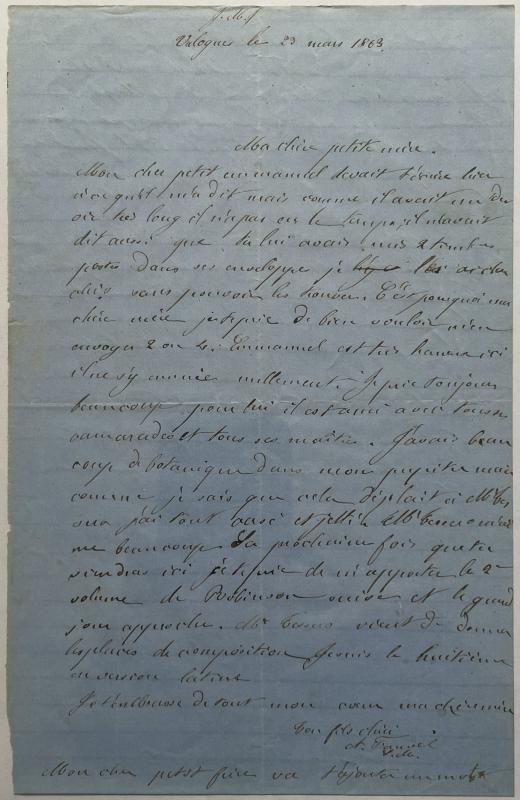 J.M.J
Valognes le 23 mars 1863.
Ma chère petite mère.
Mon cher petit emmanuel devait t'écrire hier
à ce qu'il m'a dit mais comme il avait un dev
oir très long il n'a pas eu le temps; il m'avait
dit aussi que tu lui avais mis 2 timbres
postes dans ses enveloppe je les ai cher
chés sans pouvoir les trouver. C'est pourquoi ma
chère mère je te prie de bien vouloir m'en
envoyer 2 ou 4. Emmanuel est très heureux ici
il ne s'y ennuie nullement. Je prie toujours
beaucoup pour lui il est ami avec tous ses
camarades et tous ses maîtres. J'avais beau
coup de botanique dans mon pupitre mais
comme je sais que cela déplait à Mr
j'ai tout cassé et jetté Mr
me beaucoup La prochaine fois que tu
viendras ici je te prie de m'apporter le 2e
volume de Robinson suisse et le grand
jour approche. Mr vient de donner
les places de composition Je suis le huitième
en version latine
Je t'embrasse de tout mon cœur ma chère mère
Ton fils chéri
Mon cher petit frère va t'ajouter un mot